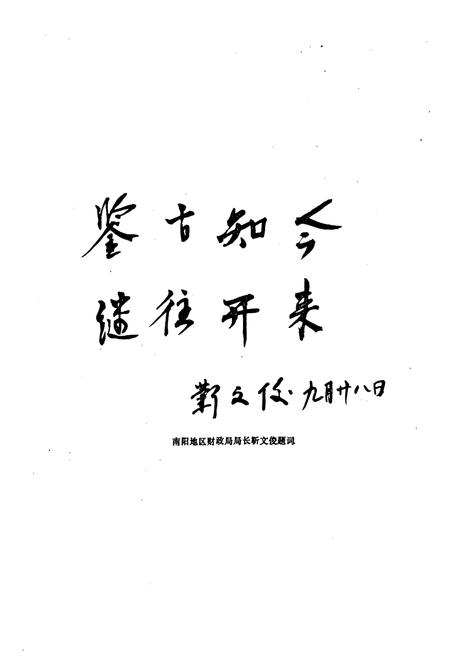 鉴古知今
继往开来
靳文俊 九月廿八日
南阳地区财政局局长靳文俊题词